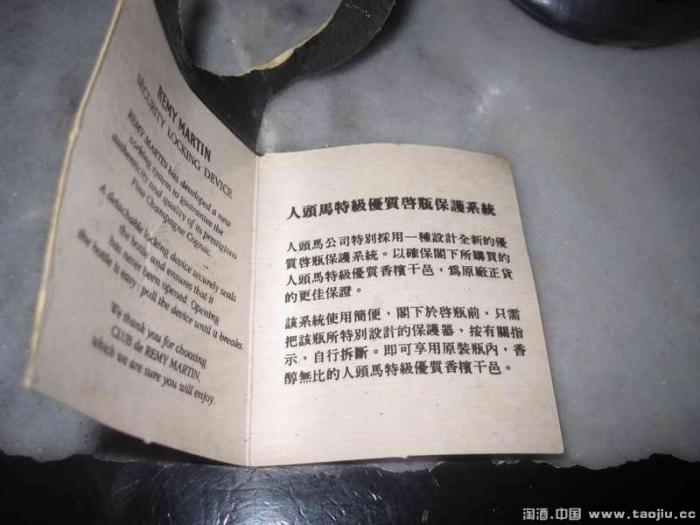 REMY MARTIN
SECURITY LOCKING DEVICE
REMY MARTIN has developed a new
working system to guarantee the
authenticity and quality of its prestigious
Fine Champagne Cognac.
A detachable locking device securely seals
the bottle and ensures that it
has never been opened. Opening
the bottle is easy: pull the device until it breaks.
We thank you for choosing
CLUB de REMY MARTIN,
which we are sure you will enjoy.
人頭馬特級優質啓瓶保護系統
人頭馬公司特別採用一種設計全新的優
質啓瓶保護系統。以確保閣下所購買的
人頭馬特級優質香檳干邑，爲原廠正貨
的更佳保證。
該系統使用簡便，閣下於啓瓶前，只需
把該瓶所特別設計的保護器，按有關指
示，自行拆斷。即可享用原裝瓶內，香
醇無比的人頭馬特級優質香檳干邑。
淘酒.中国 www.taojiu.cc